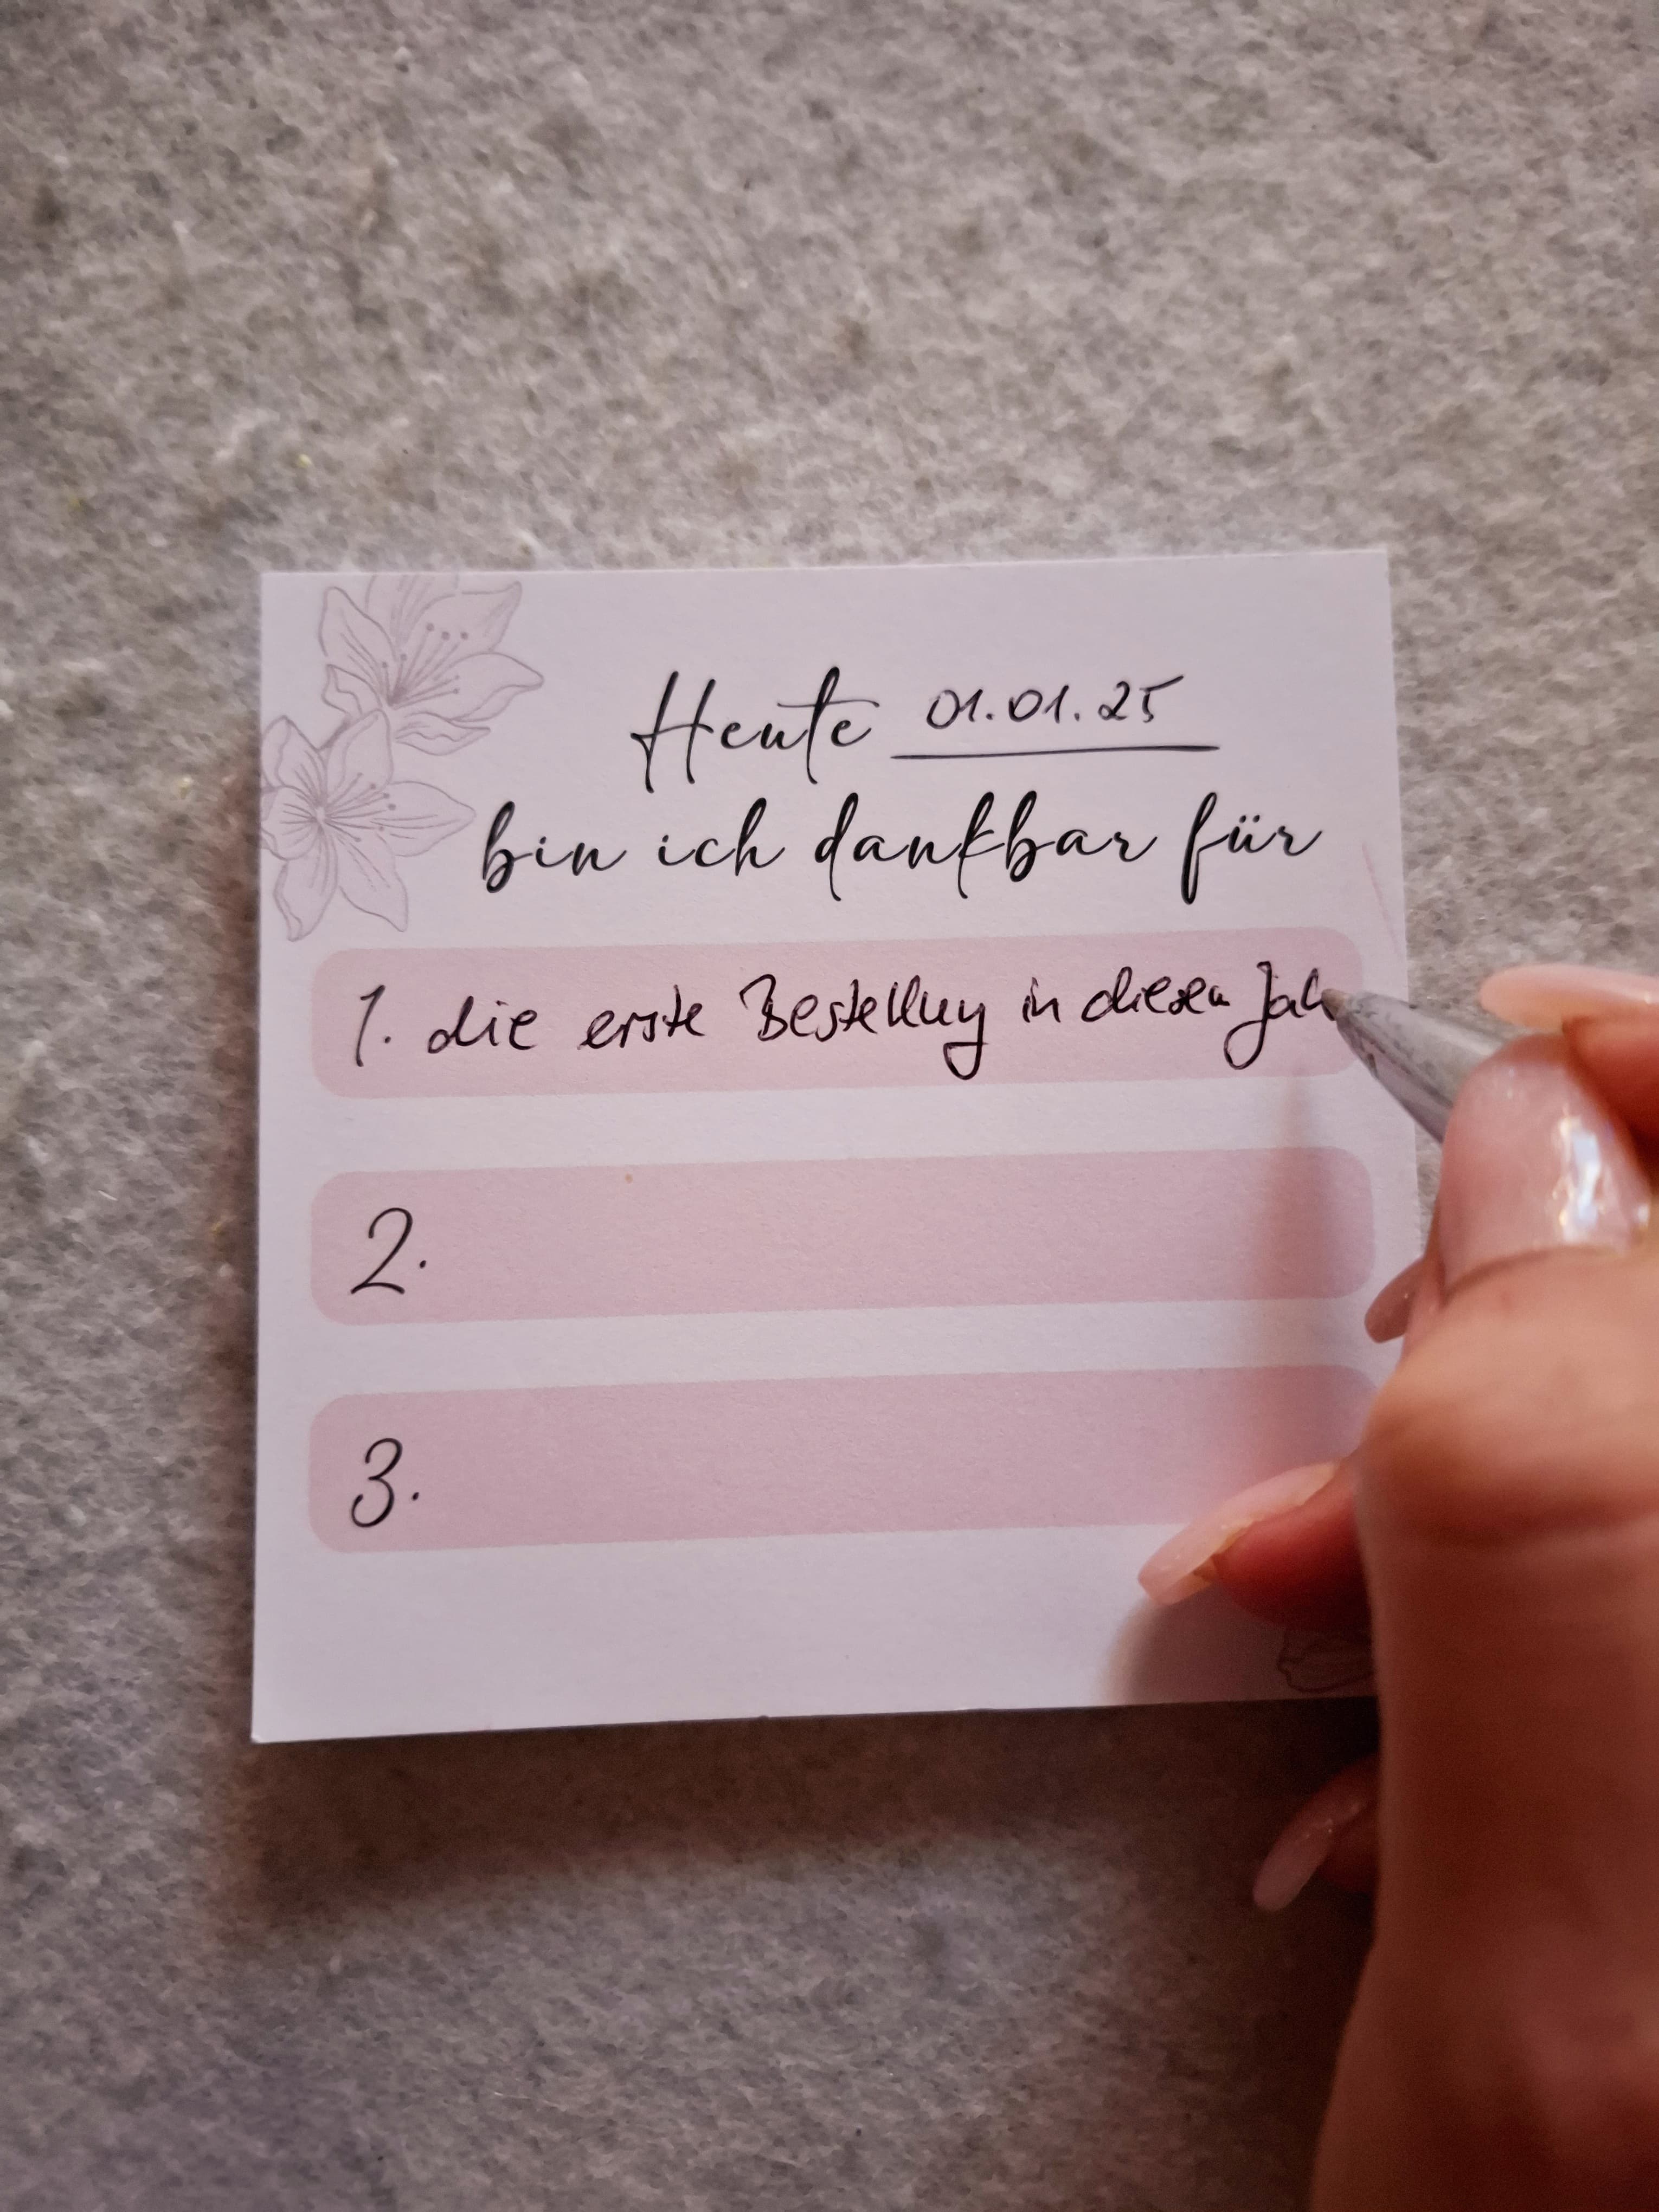 Heute 01.01.25
bin ich dankbar für
1. die erste Bestellung in diesem Jah
2.
3.